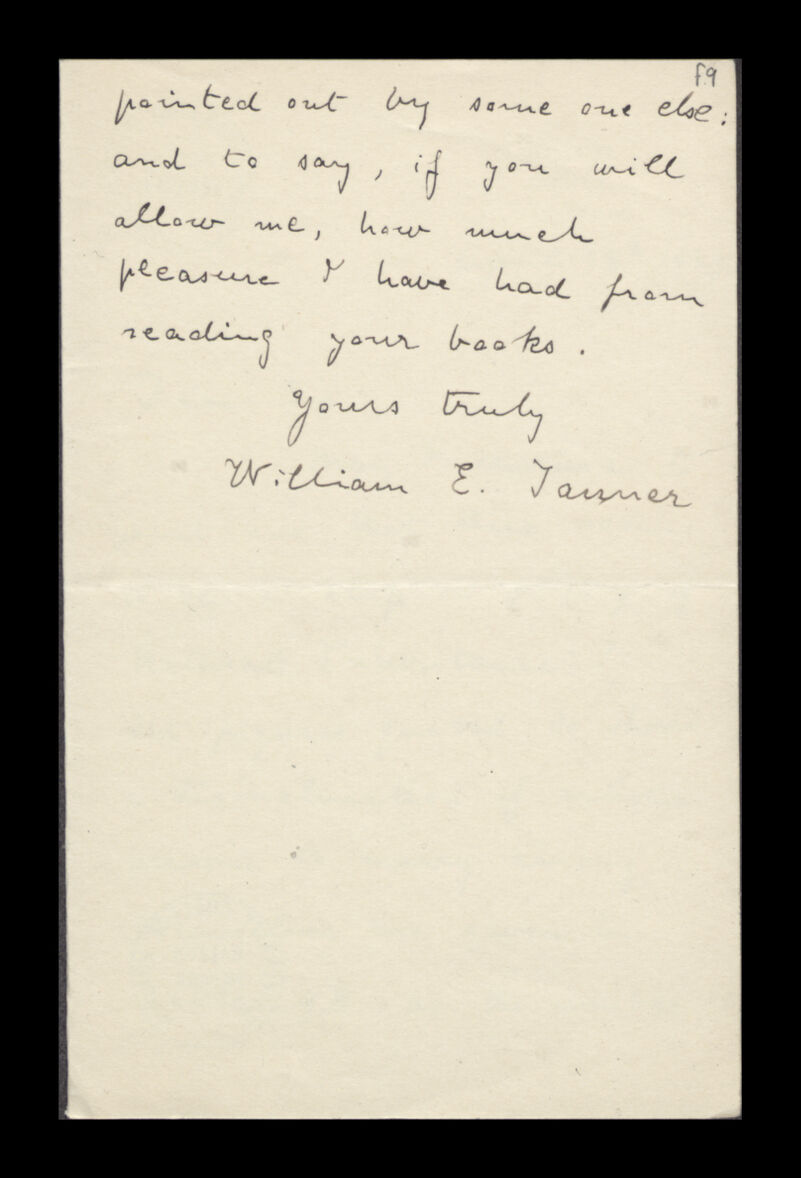 f.9
pointed out by some one else:
and to say, if you will
allow me, how much
pleasure I have had from
reading your books.
Yours truly
William E. Tanner